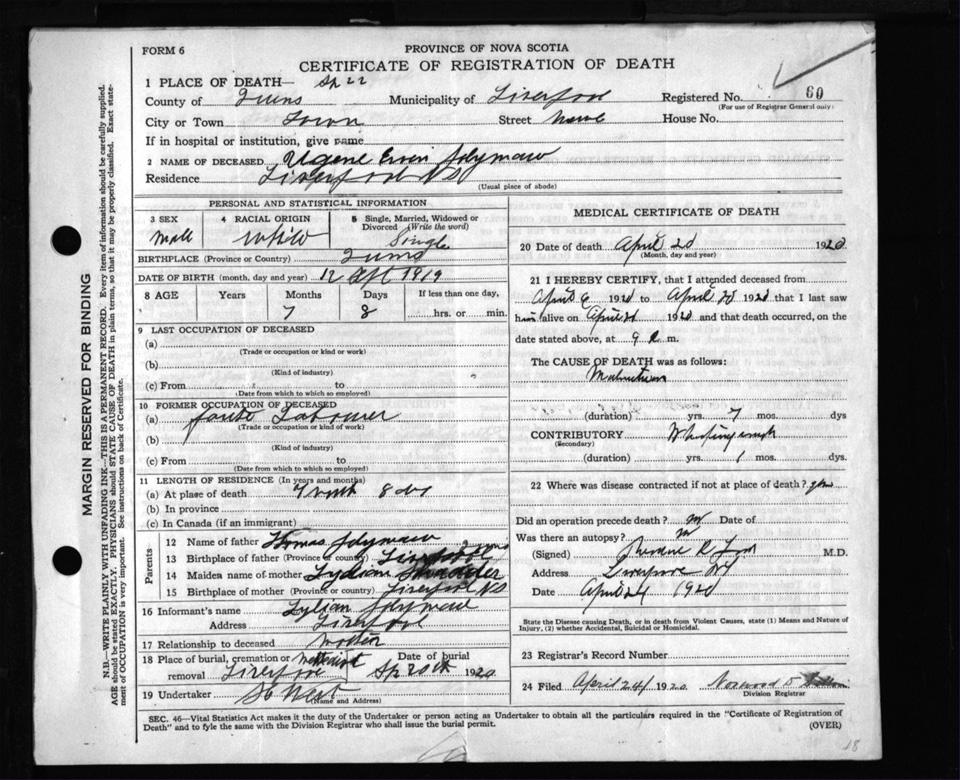 FORM 6
PROVINCE OF NOVA SCOTIA
CERTIFICATE OF REGISTRATION OF DEATH
1 PLACE OF DEATH—
County of Municipality of Liverpool Registered No. 60
(For use of Registrar General only)
City or Town Town Street House No.
If in hospital or institution, give name
2 NAME OF DECEASED Ugene
Residence Liverpool NS
(Usual place of abode)
PERSONAL AND STATISTICAL INFORMATION
3 SEX
4 RACIAL ORIGIN
5 Single, Married, Widowed or Divorced (Write the word)
Single
BIRTHPLACE (Province or Country)
DATE OF BIRTH (month, day and year) 12 1919
8 AGE Years Months Days If less than one day,
7 8 hrs. or min.
9 LAST OCCUPATION OF DECEASED
(a)
(Trade or occupation or kind or work)
(b)
(Kind of industry)
(c) From to
(Date from which to which so employed)
10 FORMER OCCUPATION OF DECEASED
(a) Labourer
(Trade or occupation or kind or work)
(b)
(Kind of industry)
(c) From to
(Date from which to which so employed)
11 LENGTH OF RESIDENCE (In years and months)
(a) At place of death 8
(b) In province
(c) In Canada (if an immigrant)
Parents
12 Name of father Thomas
13 Birthplace of father (Province or country) Liverpool
14 Maiden name of mother
15 Birthplace of mother (Province or country) Liverpool NS
16 Informant's name
Address Liverpool
17 Relationship to deceased
18 Place of burial, cremation or removal Liverpool
Date of burial 1920
19 Undertaker West
(Name and Address)
MEDICAL CERTIFICATE OF DEATH
20 Date of death April 1920
(Month, day and year)
21 I HEREBY CERTIFY, that I attended deceased from
April 6 1920 to April 1920 that I last saw
him alive on April 1920 and that death occurred, on
date stated above, at 9 m.
The CAUSE OF DEATH was as follows:
Malnutrition
(duration) yrs. 7 mos. dys
CONTRIBUTORY Whooping cough
(Secondary)
(duration) yrs. 1 mos. dys.
22 Where was disease contracted if not at place of death?
Did an operation precede death? Date of
Was there an autopsy?
(Signed) M.D.
Address Liverpool
Date April 24 1920
State the Disease causing Death, or in death from Violent Causes, state (1) Means and Nature of Injury, (2) whether Accidental, Suicidal or Homicidal.
23 Registrar's Record Number
24 Filed April 24 1920 Norwood
Division Registrar
SEC. 46—Vital Statistics Act makes it the duty of the Undertaker or person acting as Undertaker to obtain all the particulars required in the "Certificate of Registration of
Death" and to fyle the same with the Division Registrar who shall issue the burial permit.
(OVER)
18
MARGIN RESERVED FOR BINDING
N.B.—WRITE PLAINLY WITH UNFADING INK—THIS IS A PERMANENT RECORD. Every item of information should be carefully supplied.
AGE should be stated EXACTLY. PHYSICIANS should STATE CAUSE OF DEATH in plain terms, so that it may be properly classified. Exact state-
ment of OCCUPATION is very important. See instructions on back of Certificate.